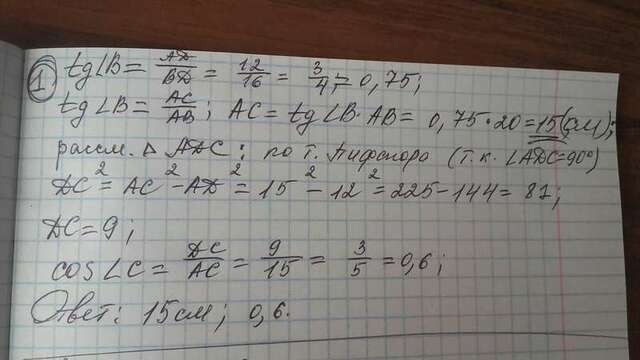 1 tg∠B = AD/BD = 12/16 = 3/4 = 0,75;
tg∠B = AC/AB; AC = tg∠B·AB = 0,75·20 = 15(см);
рассм. △ ADC: по т. Пифагора (т.к. ∠ADC=90°)
DC² = AC² - AD² = 15² - 12² = 225 - 144 = 81;
DC = 9;
cos∠C = DC/AC = 9/15 = 3/5 = 0,6;
Ответ: 15см; 0,6.